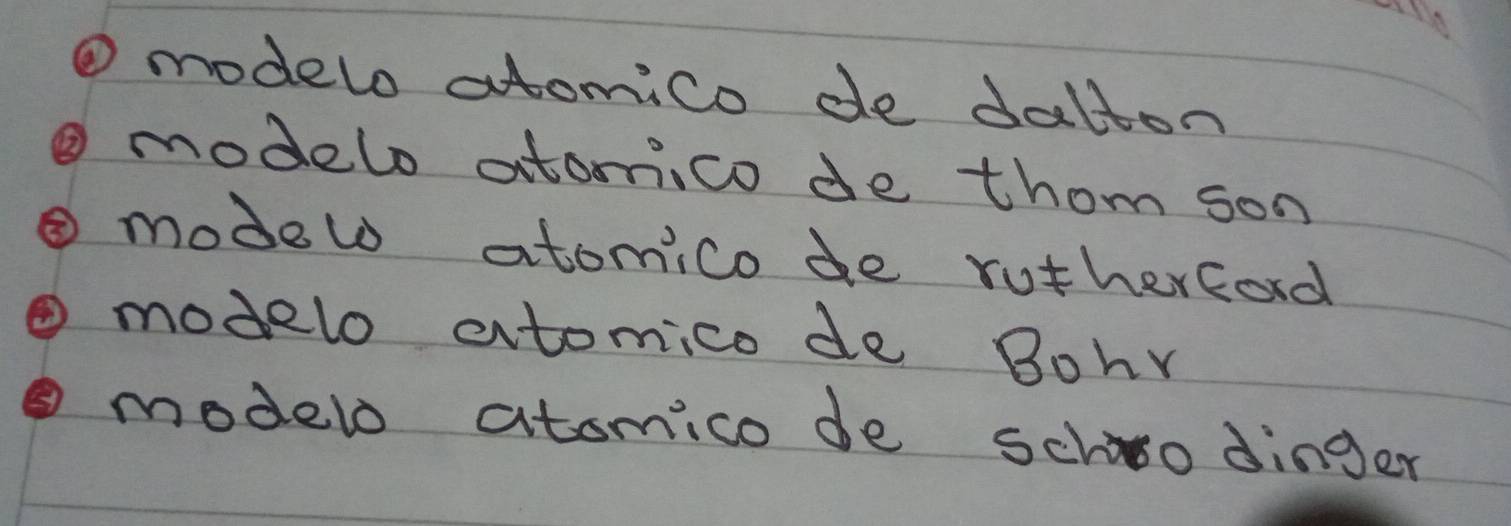 ① modelo atomico de dalton
② modelo atomico de thomson
③ modelo atomico de rutherford
④ modelo atomico de Bohr
⑤ modelo atomico de schrodinger